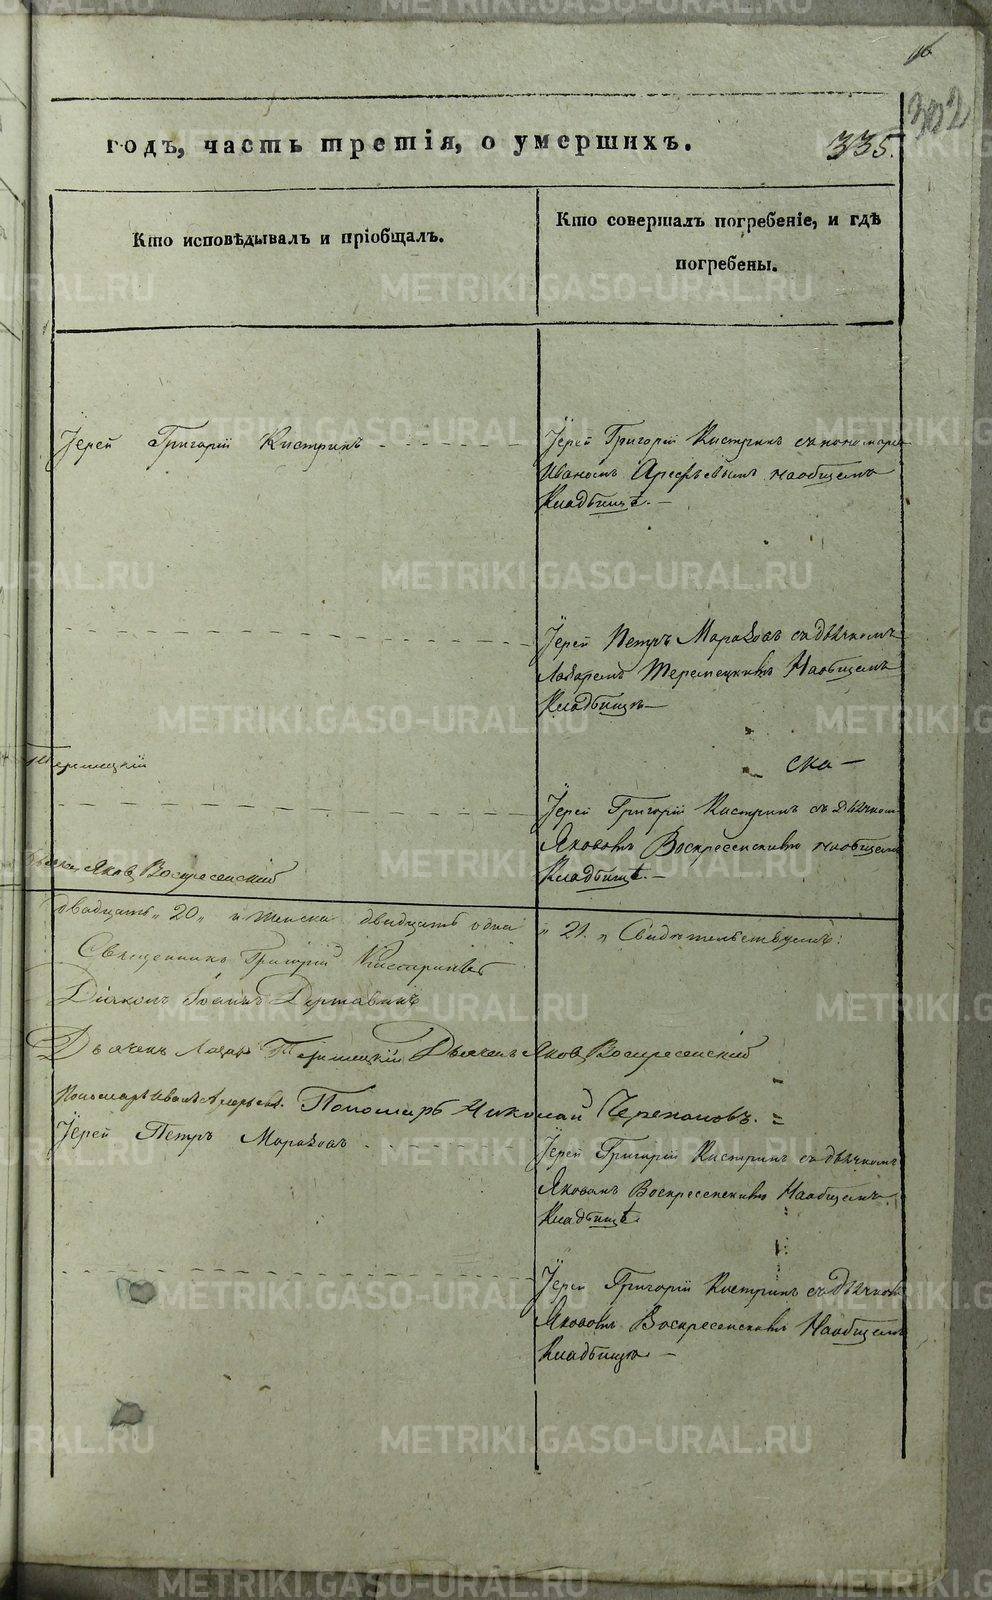 302
335.
годъ, часть третія, о умершихъ.
Кто исповѣдывалъ и пріобщалъ.
Кто совершалъ погребеніе, и гдѣ
погребены.
Іерей Григорій Кистринъ
Іерей Григорій Кистринъ съ пономаремъ
Иваномъ Арефьевымъ на общемъ
Кладбищѣ.
Іерей Петръ Мараковъ съ дьячкомъ
Лазаремъ Теремецкимъ На общемъ
Кладбищѣ
ска
Теремецкій
Іерей Григорій Кистринъ съ Дьячкомъ
Яковомъ Воскресенскимъ на общемъ
Кладбищѣ.
Яковъ Воскресенскій
двадцать „20„ и женска двадцать одна „21.„ Свидѣтельствуемъ:
Священникъ Григорій
Діаконъ Іоаннъ Державинъ
Дьячекъ Лазарь Теремецкій Дьячекъ Яковъ Воскресенскій
Пономарь Иванъ Пономарь Николай Черепановъ.
Іерей Петръ Мараковъ
Іерей Григорій Кистринъ съ дьячкомъ
Яковомъ Воскресенскимъ На общемъ
Кладбищѣ.
Іерей Григорій Кистринъ съ Дьячкомъ
Яковомъ Воскресенскимъ На общемъ
Кладбищѣ
METRIKI.GASO-URAL.RU